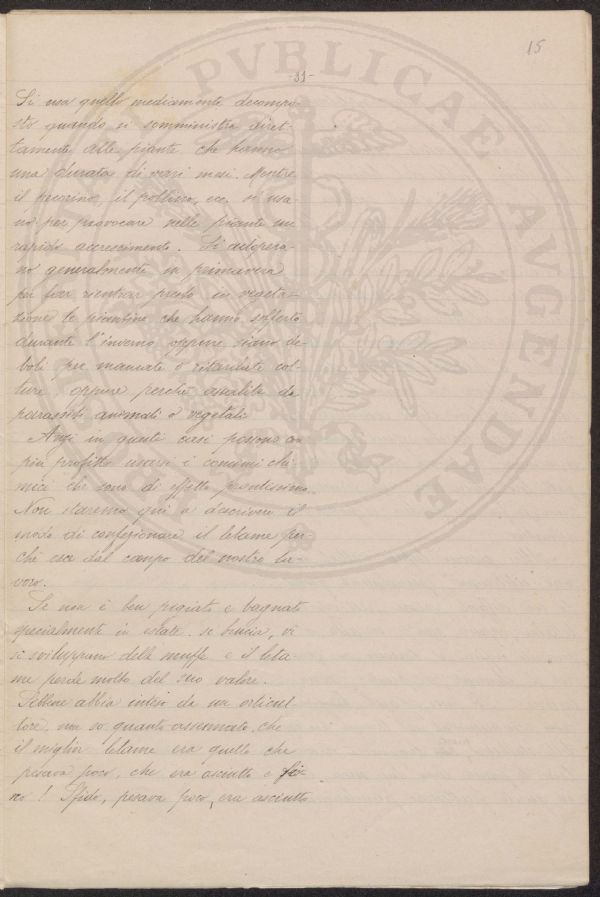 15
-31-
Si usa quello mediamente decompo-
sto quando si somministra diret-
tamente alle piante che hanno
una durata di vari mesi. Mentre
il pecorino, il pollino, ecc. si usa-
no per provocare nelle piante un
rapido accrescimento. Si adopera-
no generalmente in primavera
per far rientrar presto in vegeta-
zione le piantine che hanno sofferto
durante l'inverno oppure siano de-
boli per mancate o ritardate col-
ture, oppure perchè assalite da
parassiti animali o vegetali.
Anzi in questi casi possono con
più profitto usarsi i concimi chi-
mici che sono di effetto prontissimo.
Non staremo qui a descrivere il
modo di confezionare il letame per-
chè esce dal campo del nostro la-
voro.
Se non è ben pigiato e bagnato
specialmente in estate. se brucia, vi
si sviluppano delle muffe e il leta-
me perde molto del suo valore.
Sebbene abbia inteso da un orticul-
tore, non so quanto assennato, che
il miglior letame era quello che
pesava poco, che era asciutto e fi-
no! Sfido, pesava poco, era asciutto
PVBLICAE AVGENDAE